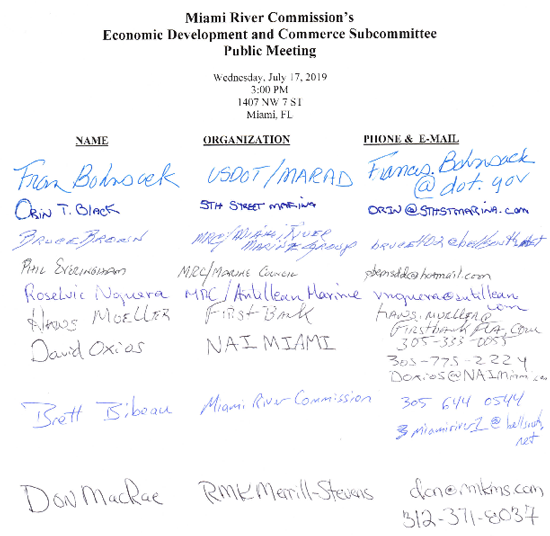 Miami River Commission's
Economic Development and Commerce Subcommittee
Public Meeting
Wednesday, July 17, 2019
3:00 PM
1407 NW 7 ST
Miami, FL
NAME ORGANIZATION PHONE & E-MAIL
Fran Bohnsack USDOT/MARAD Francis.Bohnsack
@dot.gov
ORIN T. BLACK 5TH STREET MARINA ORIN@5THSTMARINA.COM
BRUCE BROWN MRC/MIAMI RIVER
MARINE GROUP
PHIL EVERINGHAM MRC/MARINE COUNCIL @hotmail.com
Roselvic Noguera MRC/Antillean Marine vnoguera@antillean
.com
HANS MUELLER FIRST BANK hans.mueller@
FIRSTBANKFLA.COM
305-333-0053
David Oxios NAI MIAMI
305-775-2224
DOxios@NAIMiami.co
Brett Bibeau Miami River Commission 305 644 0544
miamiriver1@bellsouth.
net
DON MacRae RMK Merrill-Stevens don@rmkms.com
312-371-8037